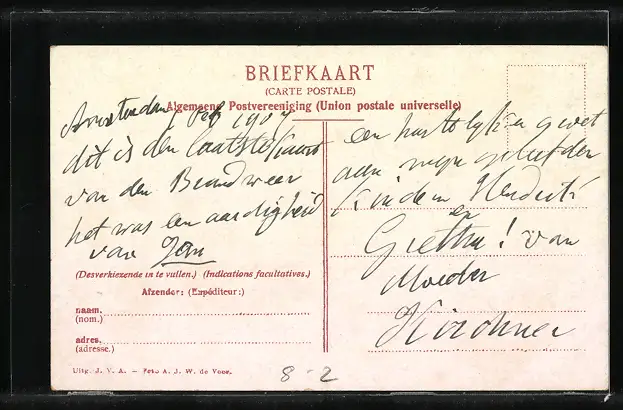 BRIEFKAART
(CARTE POSTALE)
Algemeene Postvereeniging (Union postale universelle)
Amsterdam, Oct 1904
dit is den laatste kaart
van den Brandweer
het was een aardigheid
van Jan
(Desverkiezende in te vullen.) (Indications facultatives.)
Afzender: (Expéditeur:)
naam.
(nom.)
adres.
(adresse.)
Uitg. J. V. A. — Foto A. J. W. de Veer.
een hartelijken groet
aan mijn geliefden
kinderen Hendrik
en
Grietha! van
Moeder
Kirchner
8-2